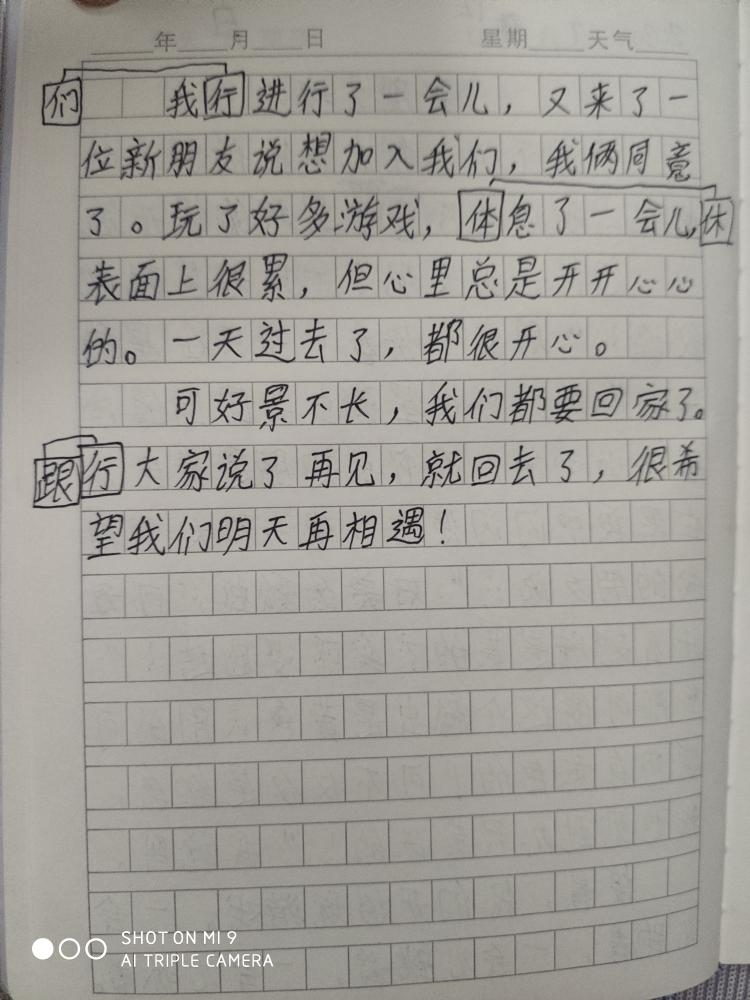 年 月 日 星期 天气
们 我行进行了一会儿，又来了一
位新朋友说想加入我们，我俩同意
了。玩了好多游戏，体息了一会儿，休
表面上很累，但心里总是开开心心
的。一天过去了，都很开心。
可好景不长，我们都要回家了。
跟 行大家说了再见，就回去了，很希
望我们明天再相遇！
SHOT ON MI 9
AI TRIPLE CAMERA